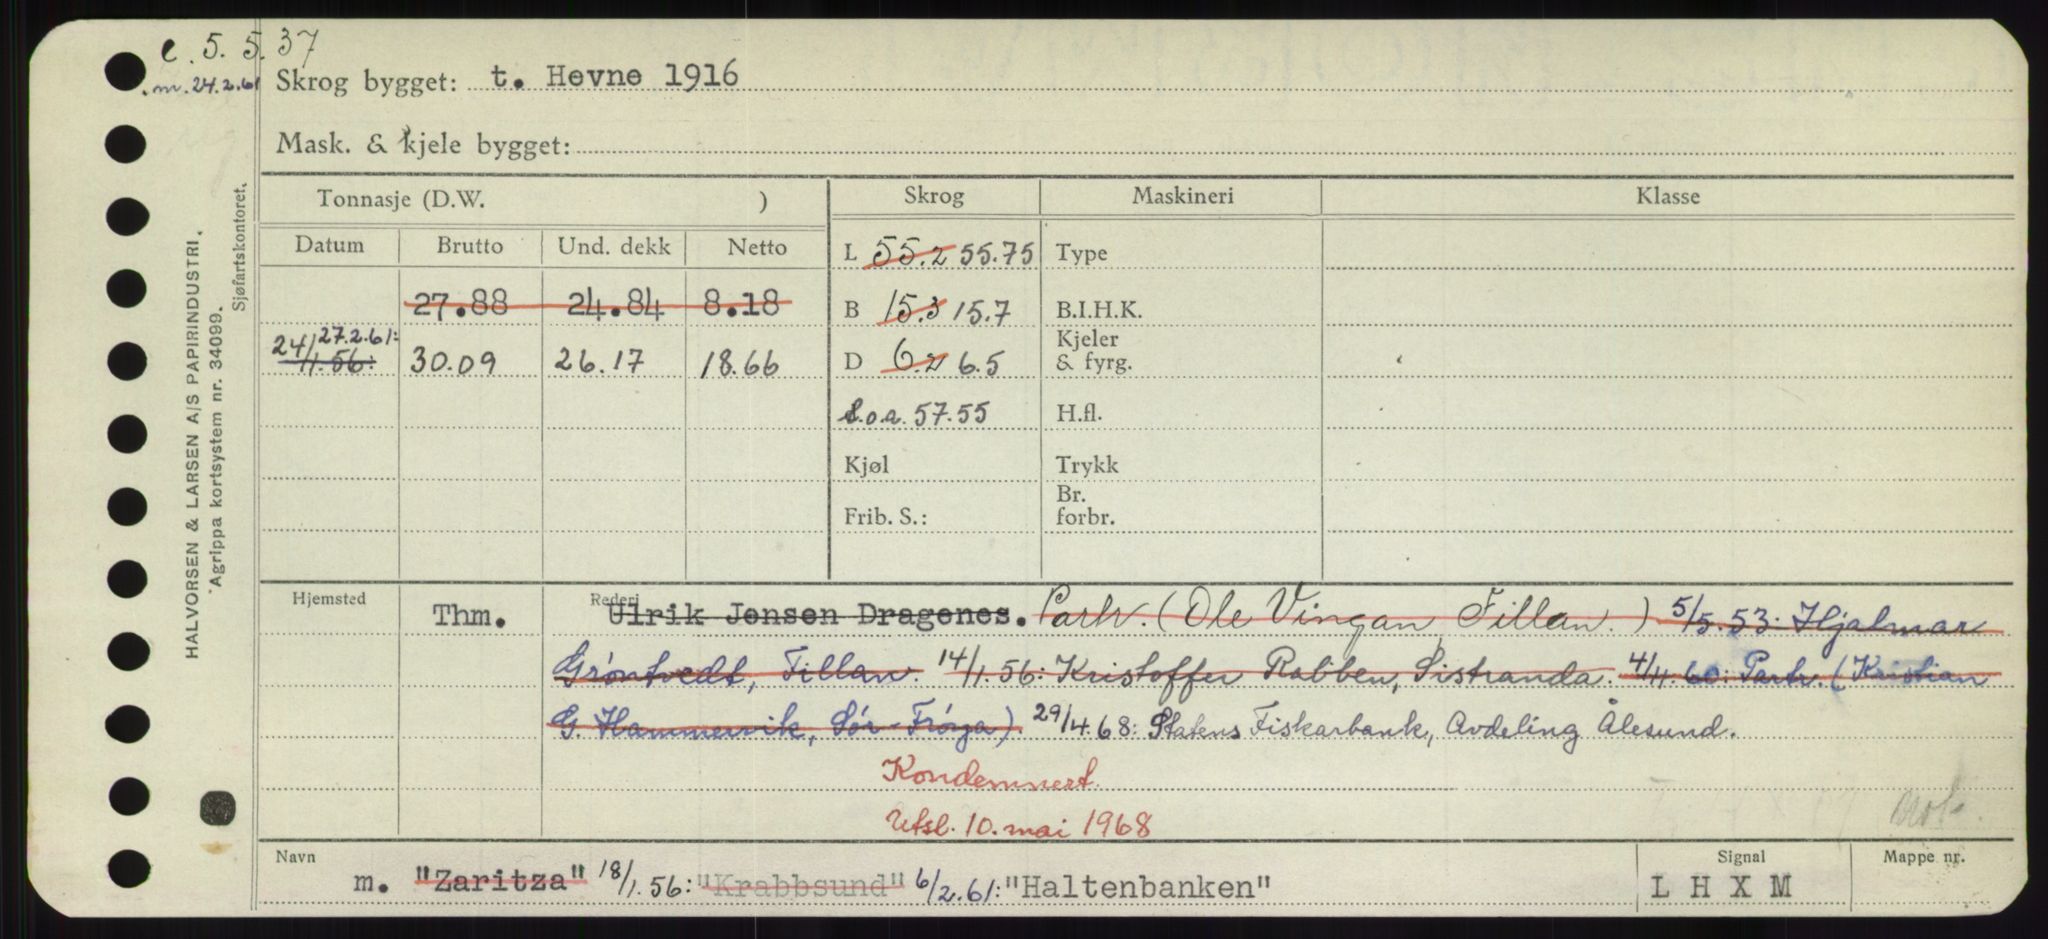 e. 5. 5. 37
m. 24.2.61
Skrog bygget: t. Hevne 1916
Mask. & kjele bygget:
Tonnasje (D.W. ) Skrog Maskineri Klasse
Datum Brutto Und. dekk Netto
L 55.2 55.75 Type
27.88 24.84 8.18
B 15.3 15.7 B.I.H.K.
27.2.61:
24/1.56: 30.09 26.17 18.66
D 6.2 6.5 Kjeler & fyrg.
L.o.a. 57.55 H.fl.
Kjøl Trykk
Frib. S.: Br. forbr.
Hjemsted Rederi
Thm. Ulrik Jensen Dragenes. Partr. (Ole Vingan Fillan.) 5/5.53: Hjalmar
Grøntvedt, Fillan. 14/1.56: Kristoffer Rabben, Sistranda. 4/4.60: Partr. (Kristian
G. Hammervik, Sør-Frøya) 29/4.68: Statens Fiskarbank, Avdeling Ålesund.
Kondemnert.
Utsl. 10. mai 1968
Navn Signal Mappe nr.
m. "Zaritza" 18/1.56: "Krabbsund" 6/2.61: "Haltenbanken" L H X M
HALVORSEN & LARSEN A/S PAPIRINDUSTRI.
Agrippa kortsystem nr. 34099.
Sjøfartskontoret.